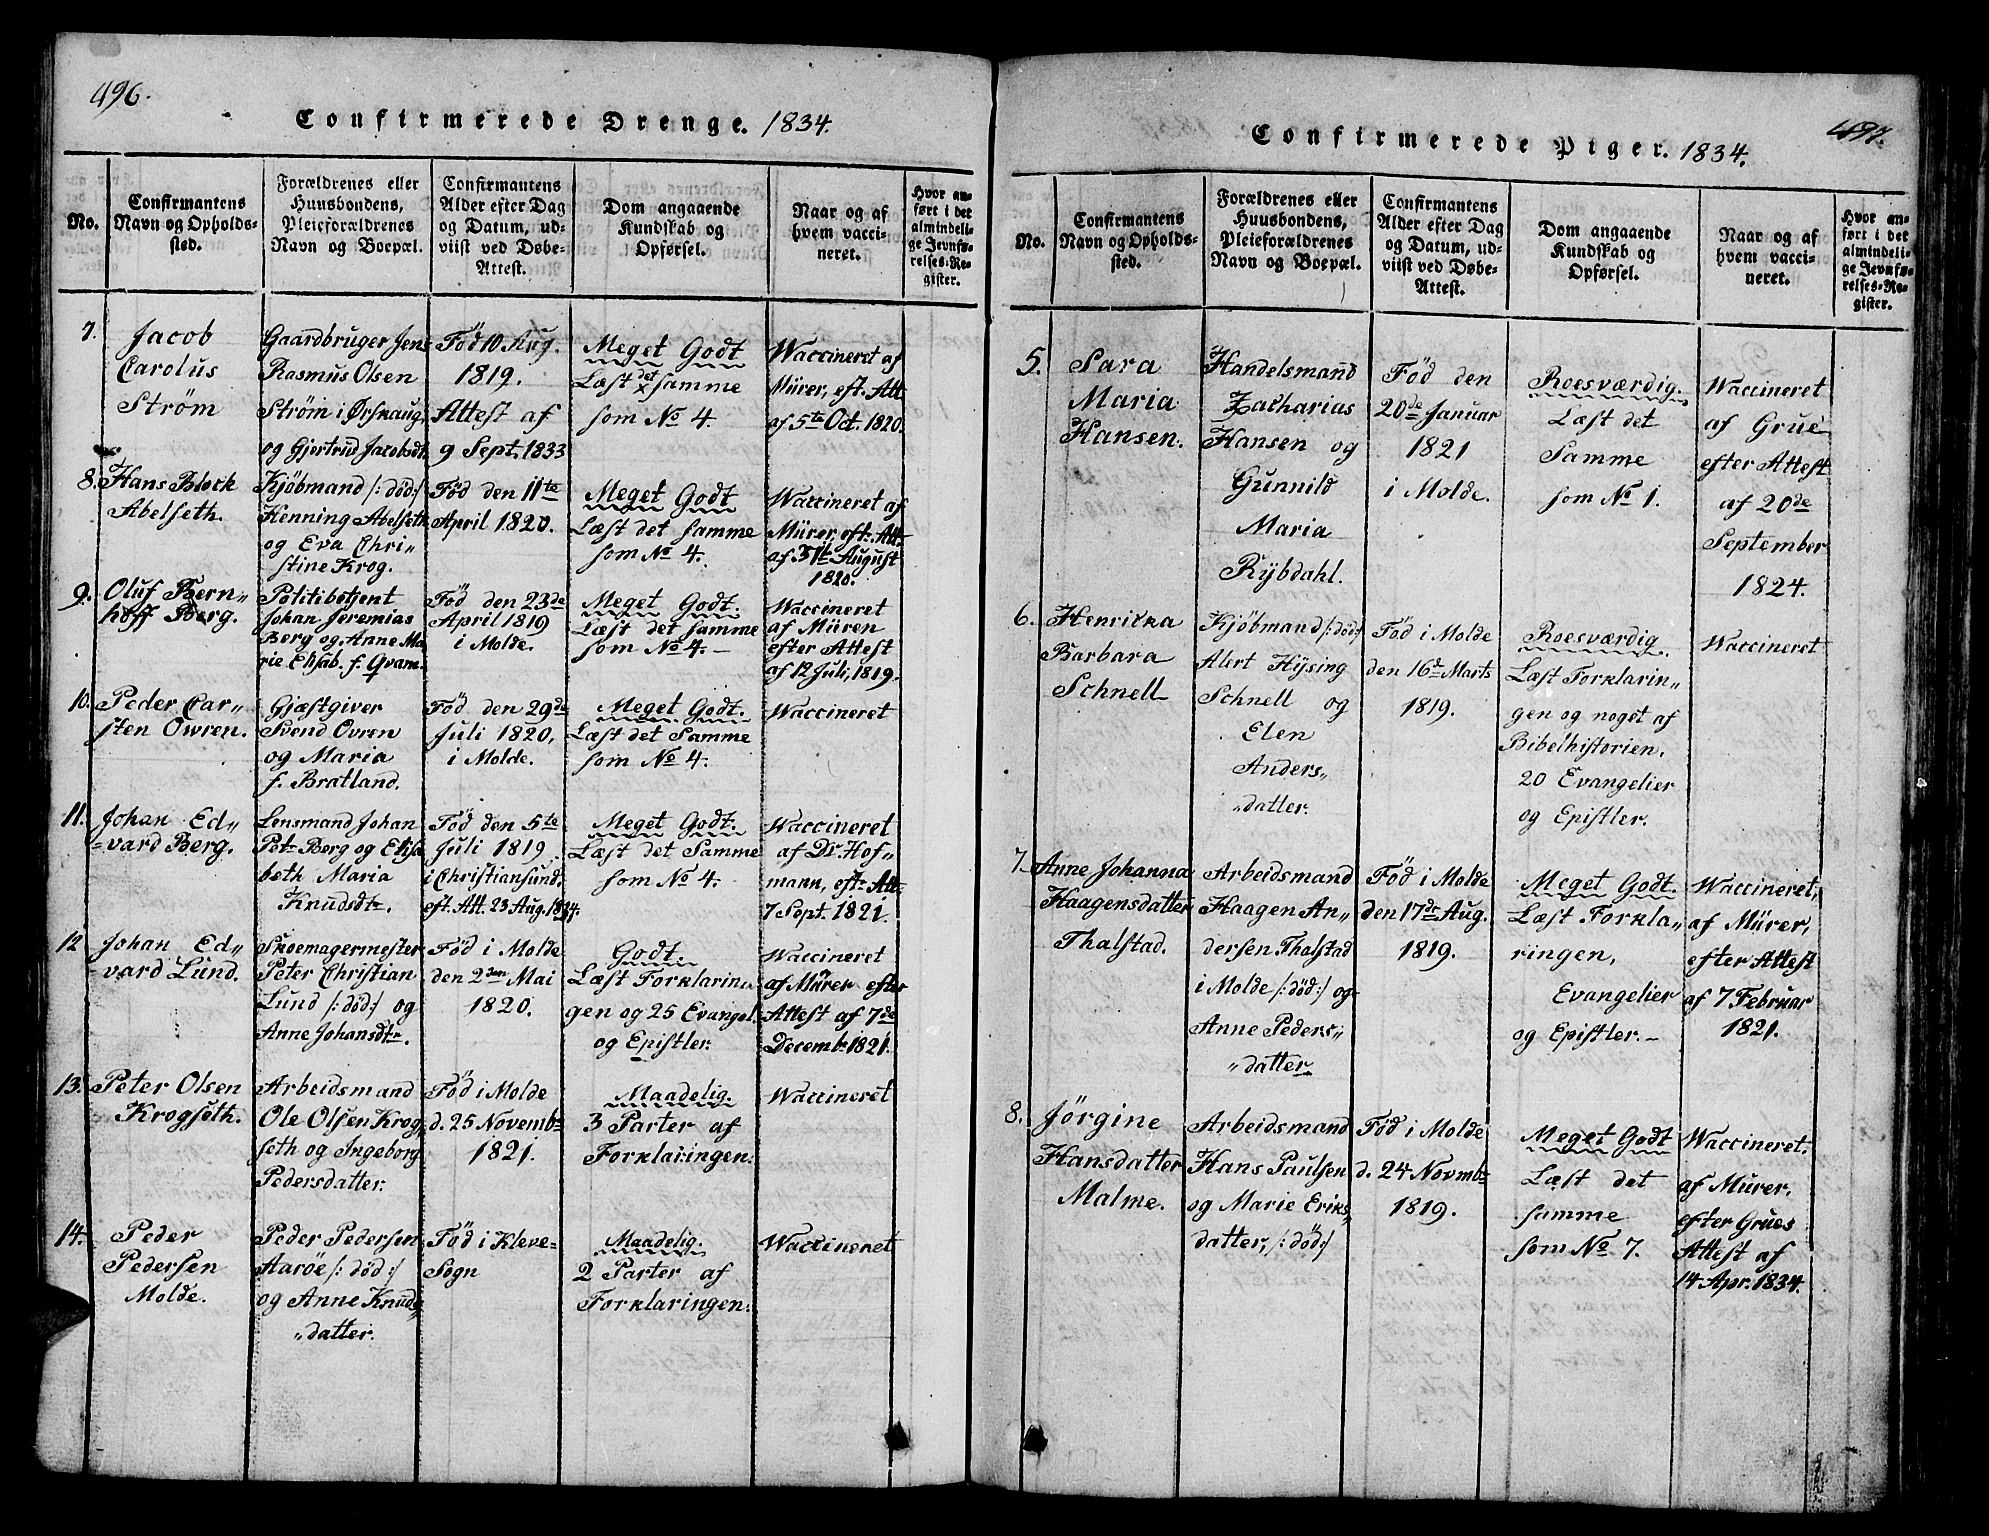 496.
Confirmerede Drenge. 1834.
No.
Confirmantens
Navn og Opholds-
sted.
Forældrenes eller
Huusbondens,
Pleieforældrenes
Navn og Boepæl.
Confirmantens
Alder efter Dag
og Datum, ud-
viist ved Døbe-
Attest.
Dom angaaende
Kundskab og
Opførsel.
Naar og af
hvem vacci-
neret.
Hvor an-
ført i det
almindeli-
ge Jevnfø-
relses-Re-
gister.
7.
Jacob
Carolus
Strøm
Gaardbruger Jens
Rasmus Olsen
Strøm i Ørskaug,
og Gjertrud Jacobsdt.
Fød 10 Aug.
1819.
Attest af
9 Sept. 1833
Meget Godt
Læst det samme
som No 4.
Waccineret af
Mürer, eft. Att
af 5te Oct. 1820.
8.
Hans Block
Abelseth.
Kjöbmand /: död:/
Henning Abelseth
og Eva Chri-
stine Krog.
Fød den 11te
April 1820.
Meget Godt
Læst det samme
som No 4.
Waccineret af
Mürer, eft. Att.
af 31te August
1820.
9.
Oluf Bern„
hoff Berg.
Politibetjent
Johan Jeremias
Berg og Anne Ma
rie Elisab. f. Qvam.
Fød den 23de
April 1819
i Molde.
Meget Godt.
Læst det samme
som No 4.-
Waccineret
af Müren
efter Attest
af 12 Juli, 1819.
10.
Peder Car-
sten Owren.
Gjæstgiver
Svend Ovren
og Maria
f. Bratland.
Fød den 29de
Juli 1820,
i Molde.
Meget Godt.
Læst det Samme
som No 4.
Waccineret
11.
Johan Ed„
-vard Berg.
Lensmand Johan
Pet. Berg og Elisa
beth Maria
Knudsdtr.
Fød den 5te
Juli 1819
i Christiansund,
eft. Att. 23 Aug. 1834.
Meget Godt.
Læst det Samme
som No 4.
Waccineret
af Dr. Hof„
mann, eft. Att.
7 Sept. 1821.
12
Johan Ed„
-vard Lund.
Skoemagermester
Peter Christian
Lund /: död:/ og
Anne Johansdtr.
Fød i Molde
den 2den Mai
1820.
Godt.
Læst Forklarin„
gen og 25 Evangel.
og Epistler.
Waccineret
af Mürer efter
Attest af 7de
Decemb. 1821.
13.
Peter Olsen
Krogseth.
Arbeidsmand
Ole Olsen Krog
seth og Ingeborg
Pedersdatter.
Fød i Molde
d. 25 Novemb.
1821.
Maadelig.
3 Parter af
Forklaringen.
Waccineret
14.
Peder
Pedersen
Molde.
Peder Pedersen
Aaröe /: död:/
og Anne Knuds
„datter.
Fød i Kleve=
Sogn
Maadelig.
2 Parter af
Forklaringen.
Waccineret
497.
Confirmerede Piger. 1834.
No.
Confirmantens
Navn og Opholds-
sted.
Forældrenes eller
Huusbondens,
Pleieforældrenes
Navn og Boepæl.
Confirmantens
Alder efter Dag
og Datum, ud-
viist ved Døbe-
Attest.
Dom angaaende
Kundskab og
Opførsel.
Naar og af
hvem vacci-
neret.
Hvor an-
ført i det
almindeli-
ge Jevnfø-
relses-Re-
gister.
5.
Sara
Maria
Hansen.
Handelsmand
Zacharias
Hansen og
Gunnild
Maria
Rÿbdahl.
Fød den
20de Januar
1821
i Molde.
Roesværdig.
Læst det
Samme
som No 1.
Waccineret
af Grue
efter Attest
af 20de
September
1824.
6.
Henricka
Barbara
Schnell
Kjöbmand /: död:/
Alert Hÿsing
Schnell og
Elen
Anders„
„datter.
Fød i Molde
den 16d Marts
1819.
Roesværdig.
Læst Forklarin„
gen og noget af
Bibelhistorien,
20 Evangelier
og Epistler.
Waccineret
7.
Anne Johanna
Haagensdatter
Thalstad.
Arbeidsmand
Haagen An„
dersen Thalstad
i Molde /: död:/ og
Anne Peders„
„datter
Fød i Molde
den 17de Aug.
1819.
Meget Godt.
Læst Forkla„
ringen,
Evangelier
og Epistler.-
Waccineret,
af Mürer,
efter Attest
af 7 Februar
1821.
8.
Jörgine
Hansdatter
Malme.
Arbeidsmand
Hans Paulsen
og Marie Eriks„
datter, /: död:/
Fød i Molde
d. 24 Novmb.
1819.
Meget Godt
Læst det
samme
som No 7.
Waccineret.
af Mürer.
efter Grues
Attest af
14 Apr. 1834.